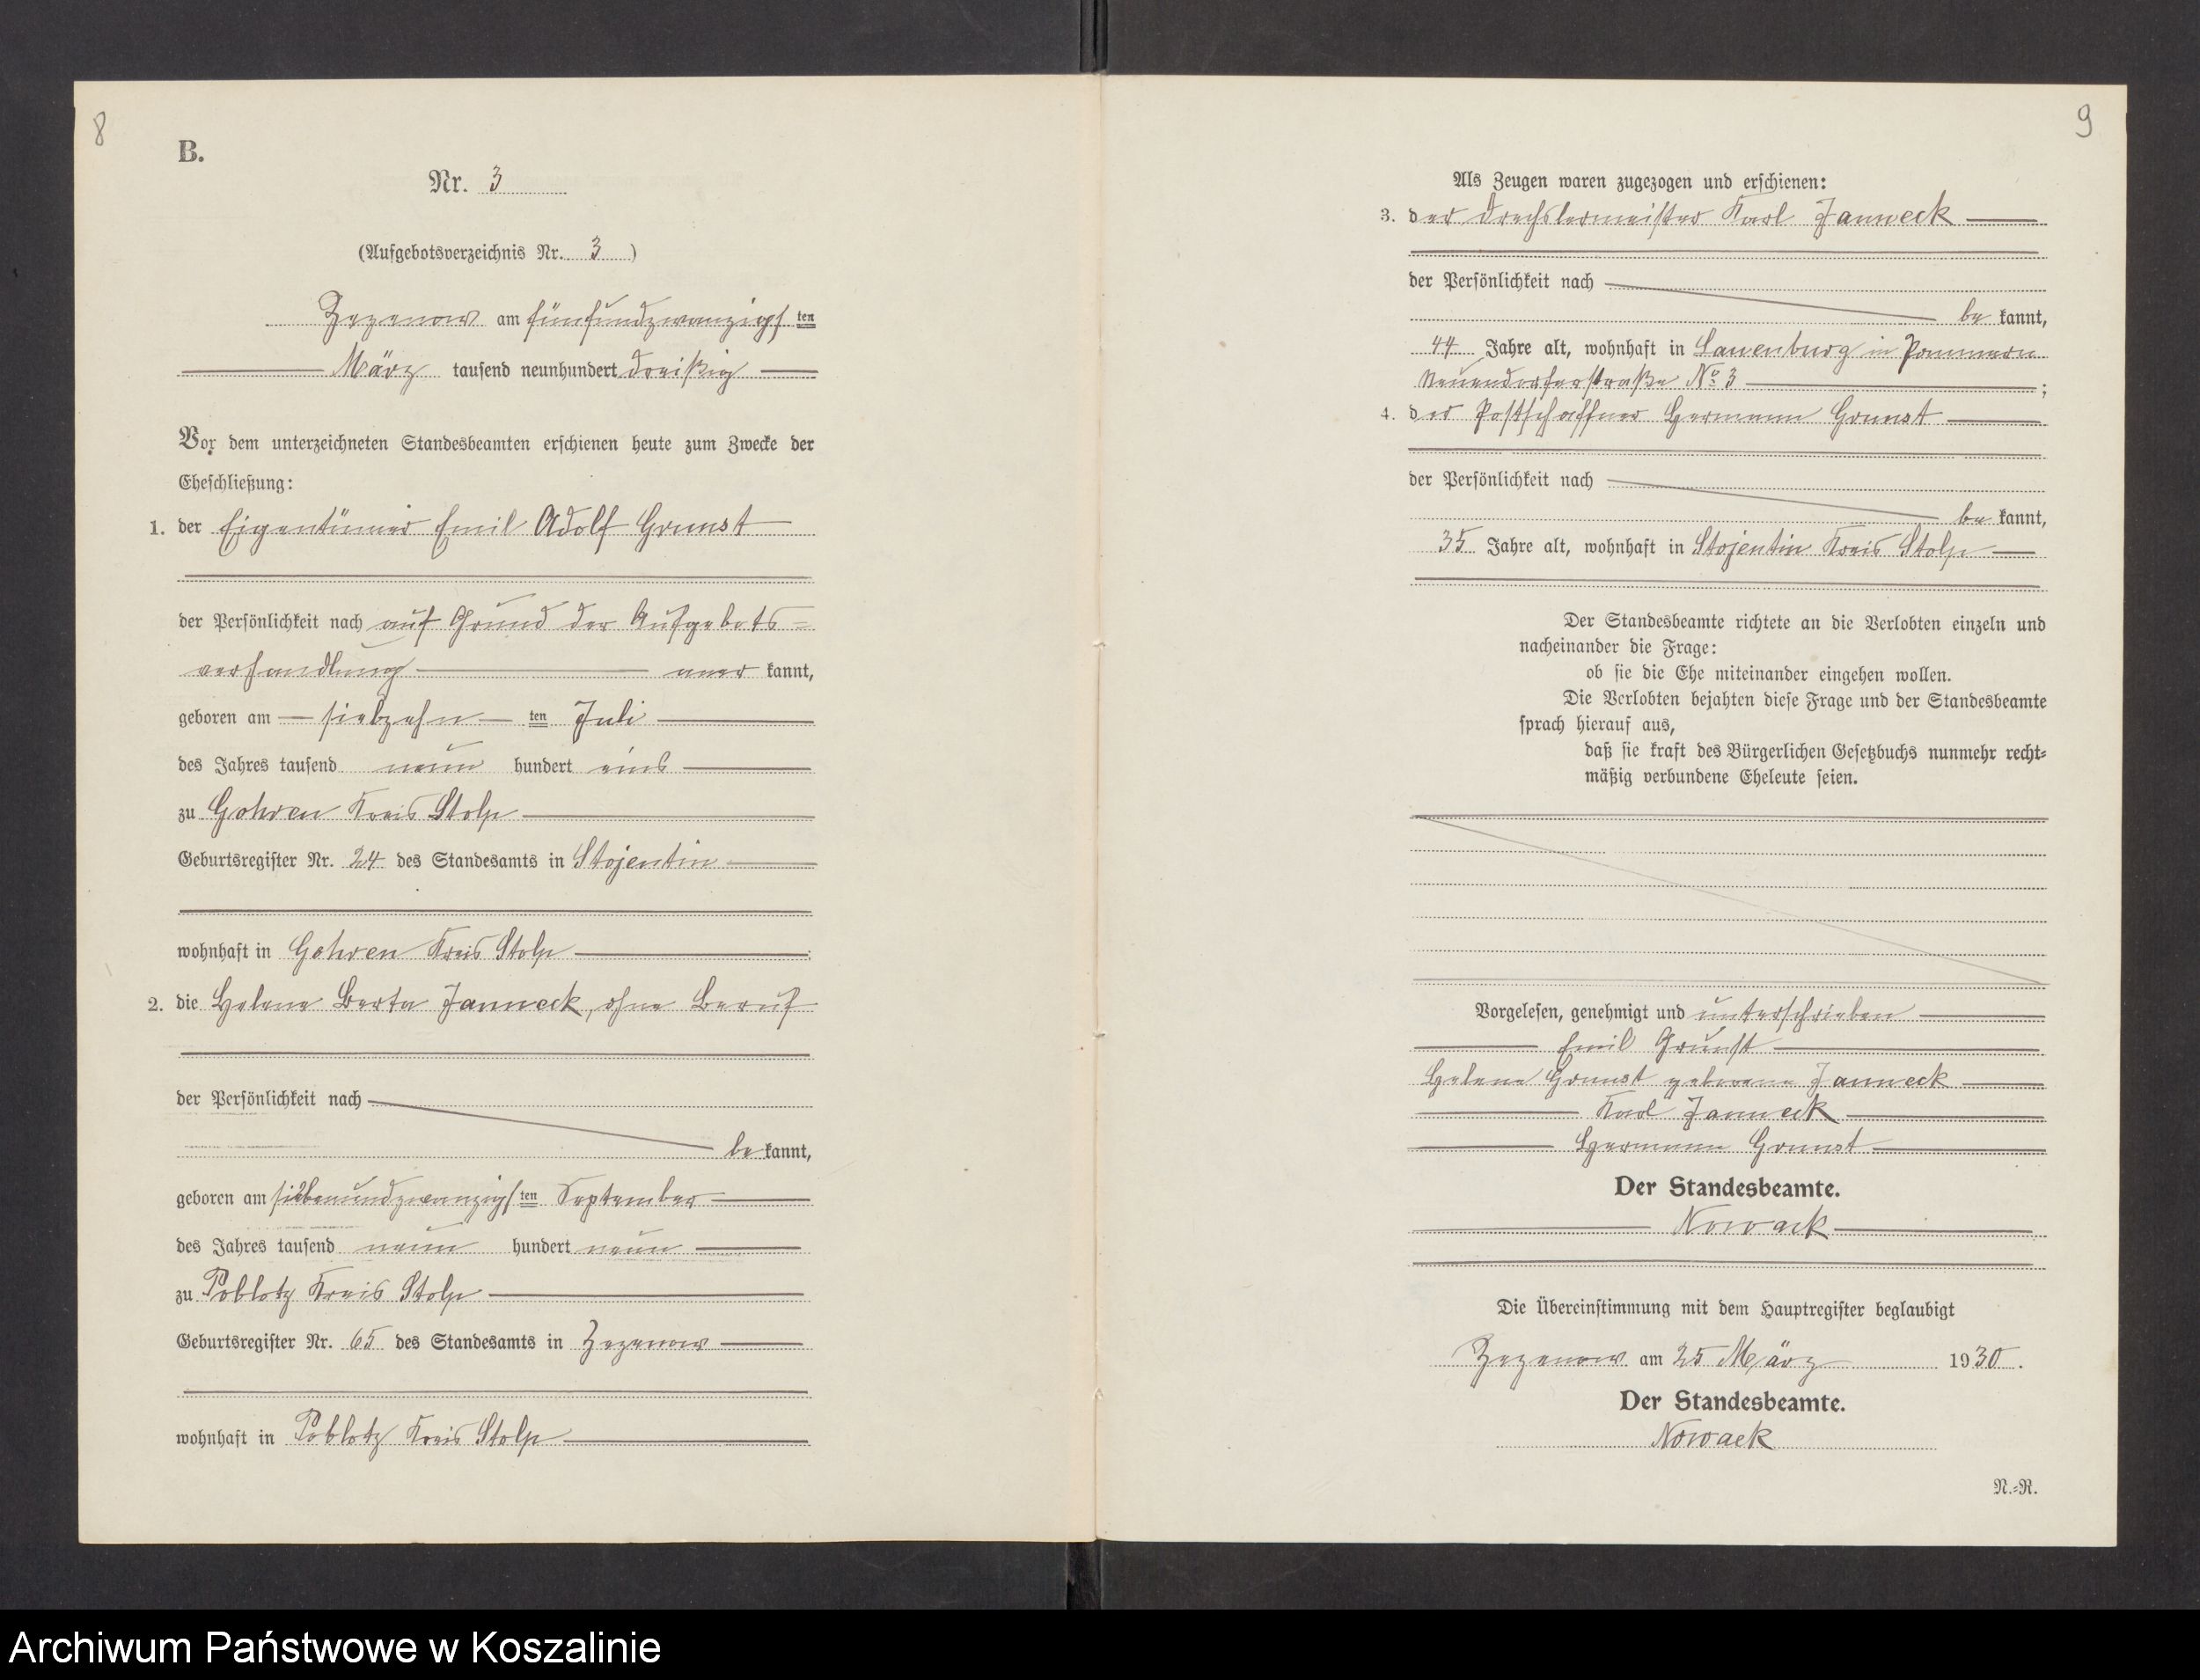 8
B.
Nr. 3
(Aufgebotsverzeichnis Nr. 3)
Zezenow am fünfundzwanzigsten
März tausend neunhundert dreißig
Vor dem unterzeichneten Standesbeamten erschienen heute zum Zwecke der
Eheschließung:
1. der Eigentümer Emil Adolf Grunst
der Persönlichkeit nach auf Grund der Aufgebots=
verhandlung anerkannt,
geboren am siebzehnten Juli
des Jahres tausend neun hundert eins
zu Gohren Kreis Stolp
Geburtsregister Nr. 24 des Standesamts in Stojentin
wohnhaft in Gohren Kreis Stolp
2. die Helene Berta Janneck, ohne Beruf
der Persönlichkeit nach
bekannt,
geboren am siebenundzwanzigsten September
des Jahres tausend neun hundert neun
zu Poblotz Kreis Stolp
Geburtsregister Nr. 65 des Standesamts in Zezenow
wohnhaft in Poblotz Kreis Stolp
9
Als Zeugen waren zugezogen und erschienen:
3. der Drechslermeister Karl Janneck
der Persönlichkeit nach
bekannt,
44 Jahre alt, wohnhaft in Lauenburg in Pommern
Neuendorferstraße No 3;
4. der Postschaffner Hermann Grunst
der Persönlichkeit nach
bekannt,
35 Jahre alt, wohnhaft in Stojentin Kreis Stolp
Der Standesbeamte richtete an die Verlobten einzeln und
nacheinander die Frage:
ob sie die Ehe miteinander eingehen wollen.
Die Verlobten bejahten diese Frage und der Standesbeamte
sprach hierauf aus,
daß sie kraft des Bürgerlichen Gesetzbuchs nunmehr recht=
mäßig verbundene Eheleute seien.
Vorgelesen, genehmigt und unterschrieben
Emil Grunst
Helene Grunst geborene Janneck
Karl Janneck
Hermann Grunst
Der Standesbeamte.
Nowack
Die Übereinstimmung mit dem Hauptregister beglaubigt
Zezenow am 25 März 1930.
Der Standesbeamte.
Nowack
N.=R.
Archiwum Państwowe w Koszalinie